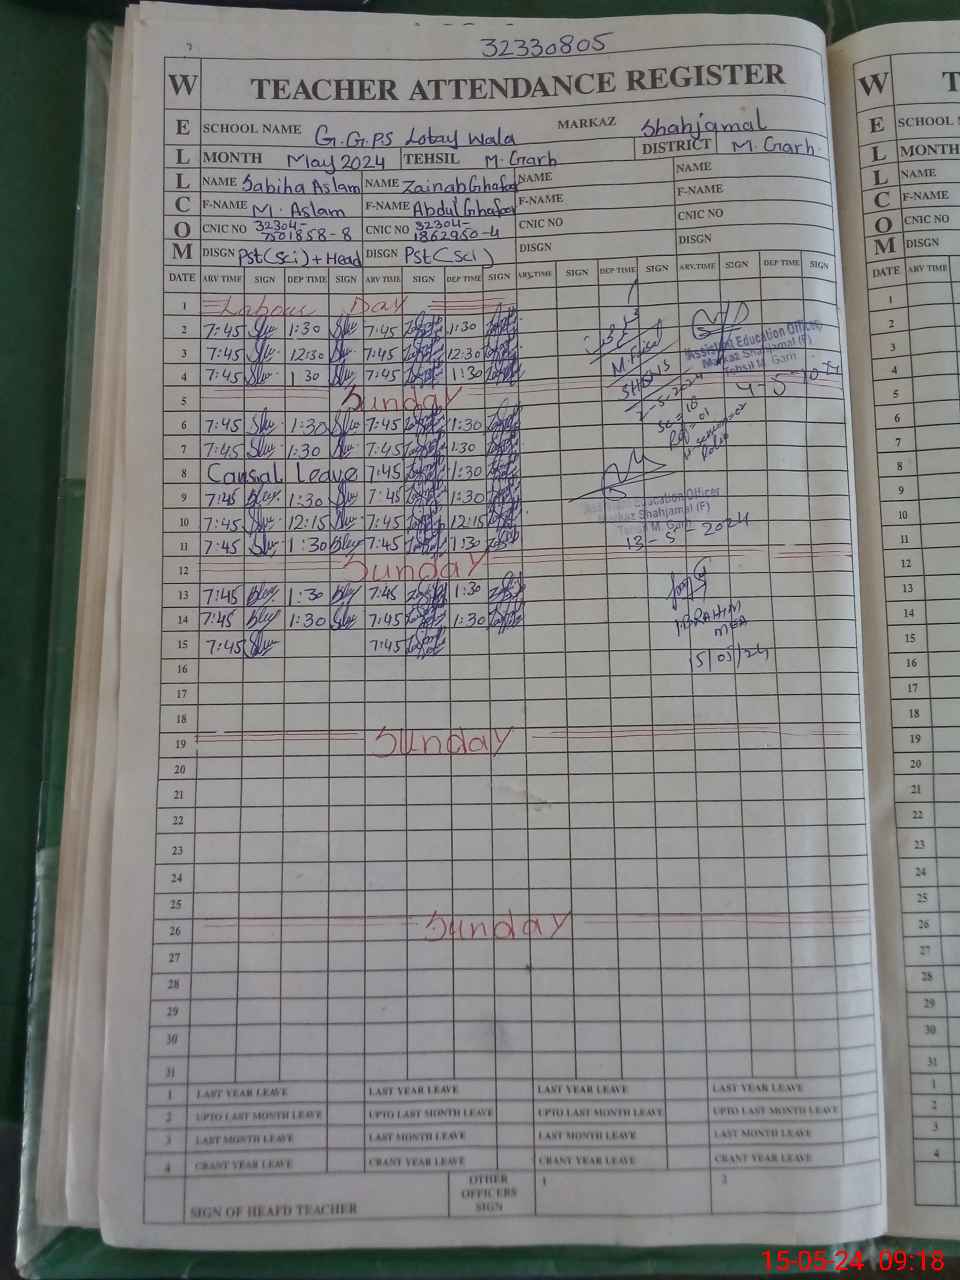 32330805
W TEACHER ATTENDANCE REGISTER
E SCHOOL NAME G.G.PS Lotay Wala MARKAZ Shahjamal
L MONTH May 2024 TEHSIL M.Garh DISTRICT M.Garh.
L NAME Sabiha Aslam NAME Zainab Ghafoor NAME NAME
C F-NAME M. Aslam F-NAME Abdul Ghafoor F-NAME F-NAME
O CNIC NO 32304-7501858-8 CNIC NO 32304-1862950-4 CNIC NO CNIC NO
M DISGN Pst(Sci)+Head DISGN Pst(Sci) DISGN DISGN
DATE ARV TIME SIGN DEP TIME SIGN ARV TIME SIGN DEP TIME SIGN ARV.TIME SIGN DEP TIME SIGN ARV.TIME SIGN DEP TIME SIGN
1 Labour Day
2 7:45 1:30 7:45 1:30
3 7:45 12:30 7:45 12:30
4 7:45 1 30 7:45 1:30
5 Sunday
6 7:45 1:30 7:45 1:30
7 7:45 1:30 7:45 1:30
8 Causal Leave 7:45 1:30
9 7:45 1:30 7:45 1:30
10 7:45 12:15 7:45 12:15
11 7:45 1:30 7:45 1:30
12 Sunday
13 7:45 1:30 7:45 1:30
14 7:45 1:30 7:45 1:30
15 7:45 7:45
16
17
18
19 Sunday
20
21
22
23
24
25
26 Sunday
27
28
29
30
31
Assistant Education Officer
Markaz Shahjamal (F)
Tehsil M. Garh
Assistant Education Officer
Markaz Shahjamal (F)
Tehsil M. Garh
13-5-2024
IBRAHIM
MEA
15/05/24
1 LAST YEAR LEAVE LAST YEAR LEAVE LAST YEAR LEAVE LAST YEAR LEAVE
2 UPTO LAST MONTH LEAVE UPTO LAST MONTH LEAVE UPTO LAST MONTH LEAVE UPTO LAST MONTH LEAVE
3 LAST MONTH LEAVE LAST MONTH LEAVE LAST MONTH LEAVE LAST MONTH LEAVE
4 CRANT YEAR LEAVE CRANT YEAR LEAVE CRANT YEAR LEAVE CRANT YEAR LEAVE
SIGN OF HEAFD TEACHER OTHER OFFICERS SIGN 1 2
W T
E SCHOOL
L MONTH
L NAME
C F-NAME
O CNIC NO
M DISGN
DATE ARV TIME
1
2
3
4
5
6
7
8
9
10
11
12
13
14
15
16
17
18
19
20
21
22
23
24
25
26
27
28
29
30
31
1
2
3
4
15-05-24 09:18